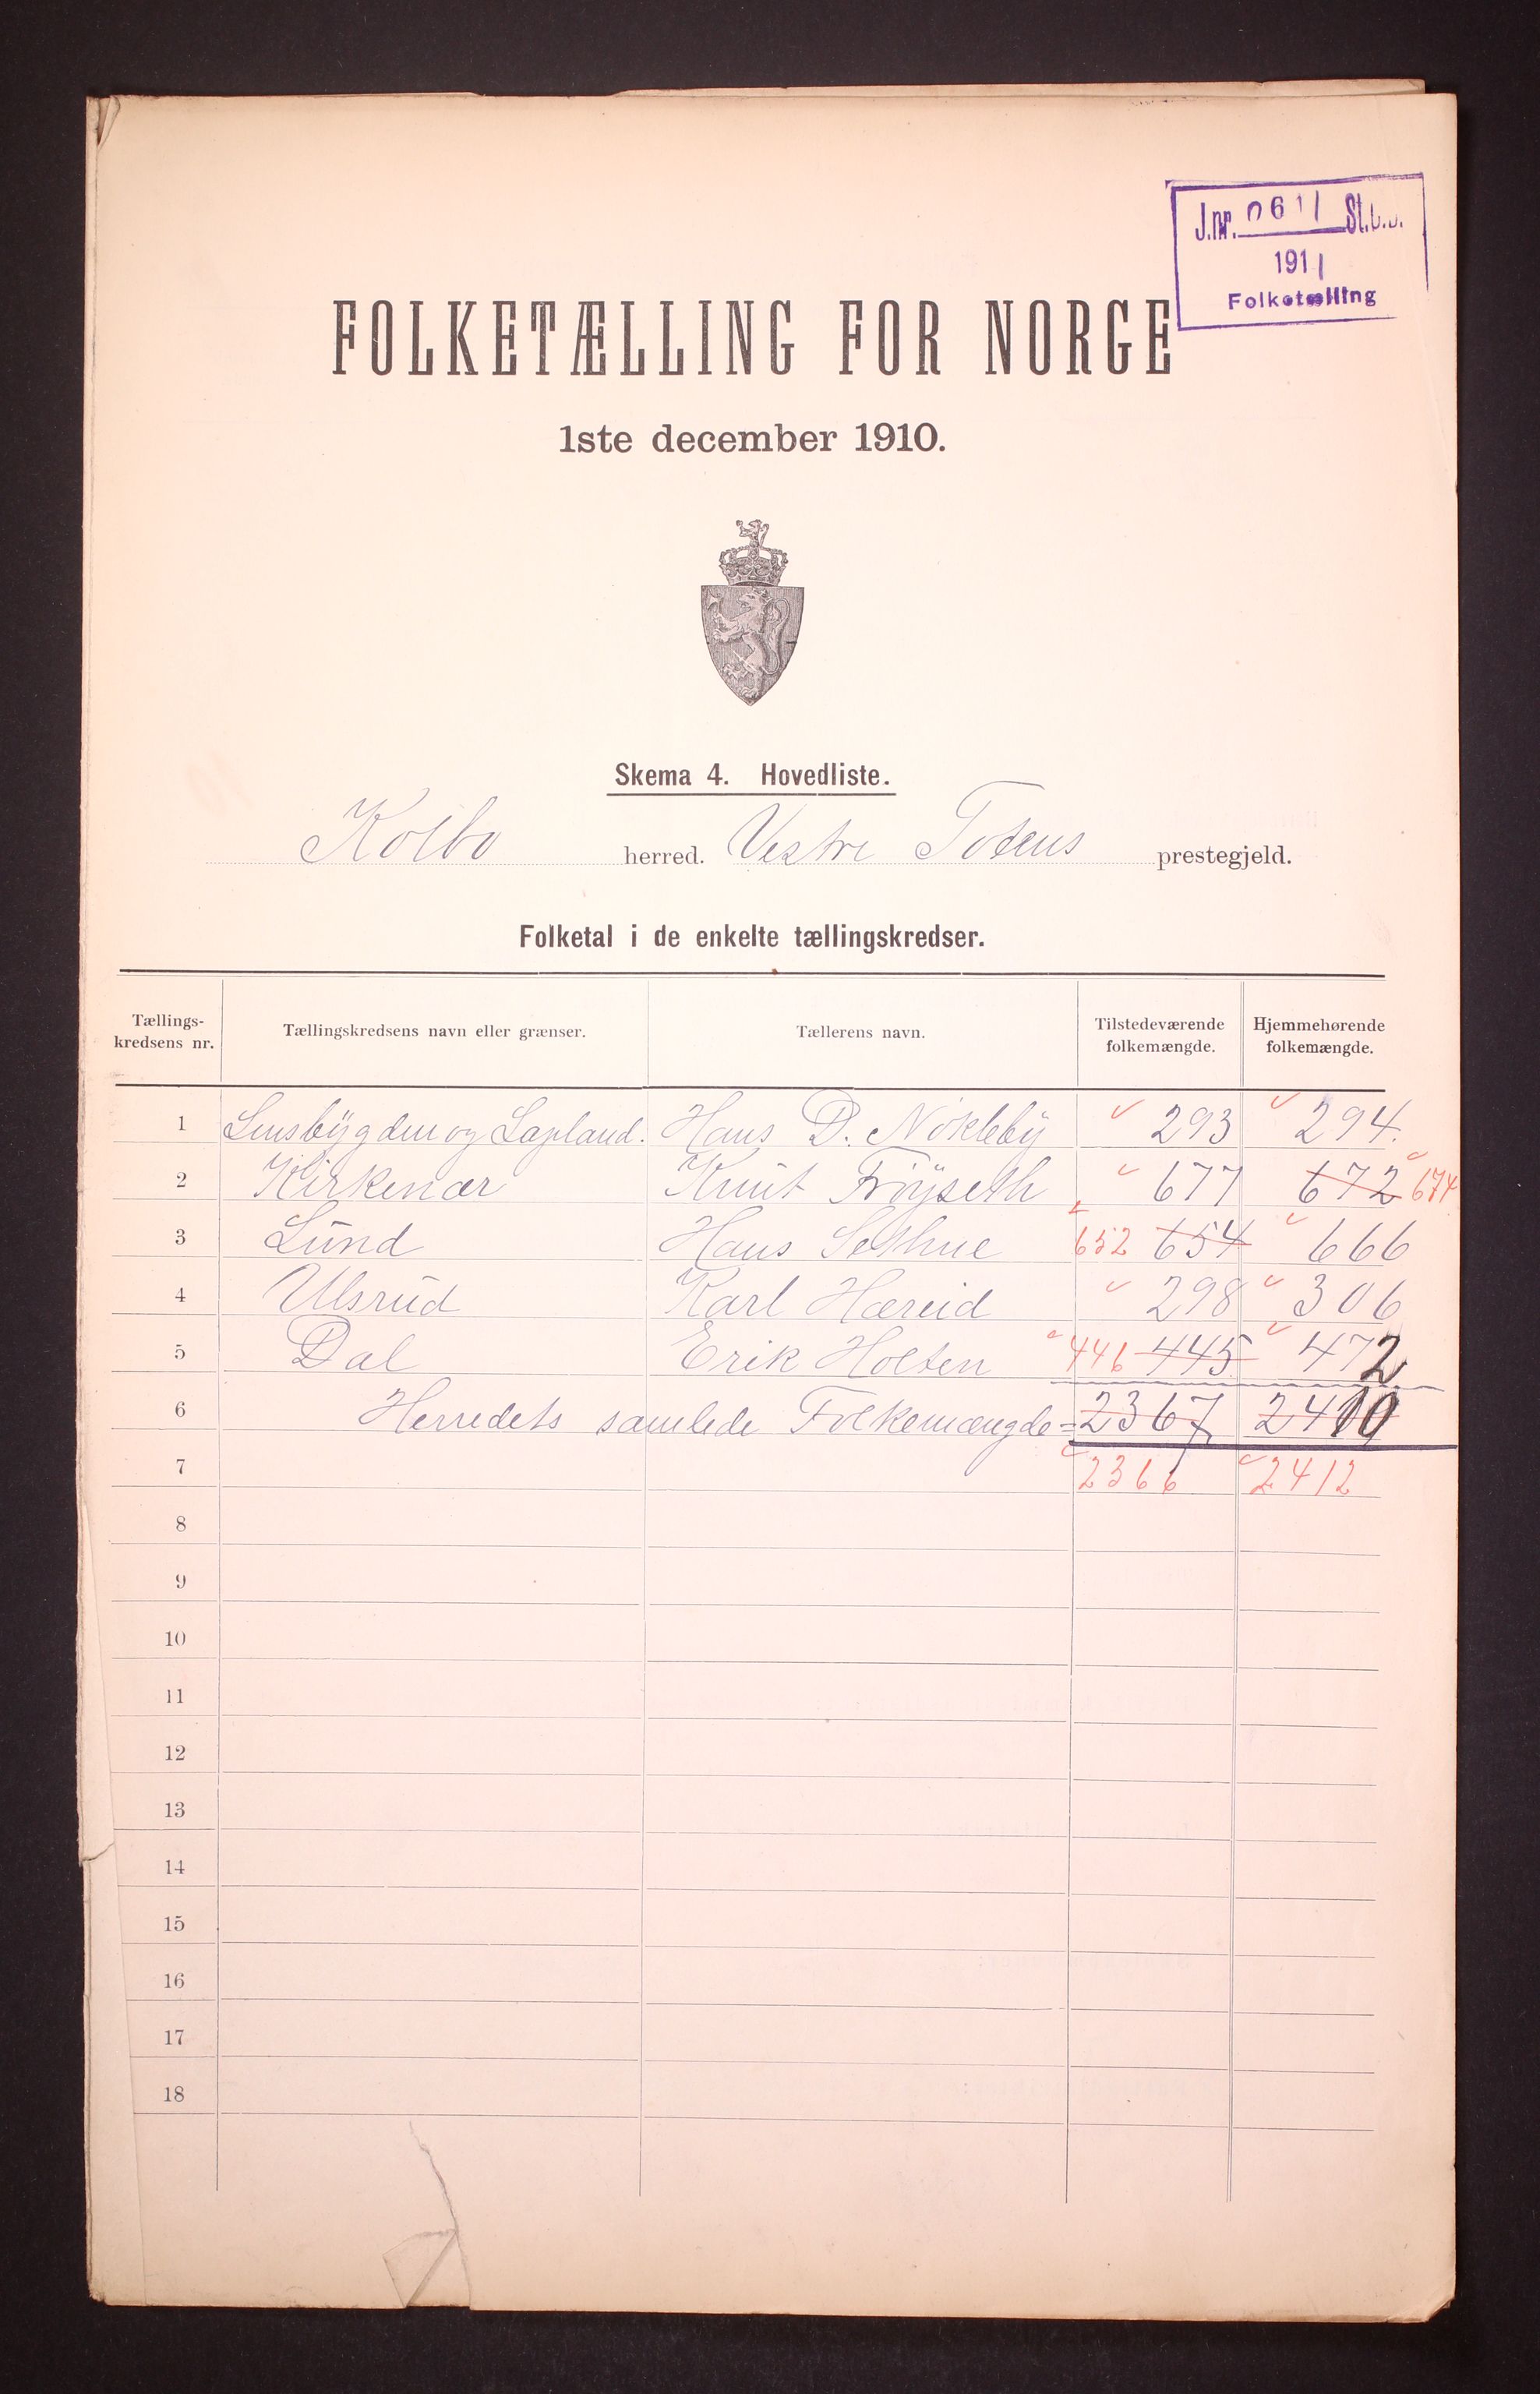 J.nr. 0611 St.c.b.
1911
Folketælling
FOLKETÆLLING FOR NORGE
1ste december 1910.
Skema 4. Hovedliste.
Kolbo herred. Vestre Totens prestegjeld.
Folketal i de enkelte tællingskredser.
Tællings-kredsens nr. Tællingskredsens navn eller grænser. Tællerens navn. Tilstedeværende folkemængde. Hjemmehørende folkemængde.
1 og Lapland. Hans D. Nökleby 293 294.
2 Kirkenær Knut Fröyseth 677 672 674
3 Lund Hans Sethne 652 654 666
4 Ulsrud Karl Hæreid 298 306
5 Dal Erik Holten 446 445 472
6 Herredets samlede Folkemængde = 2367 2410
7 2366 2412
8
9
10
11
12
13
14
15
16
17
18